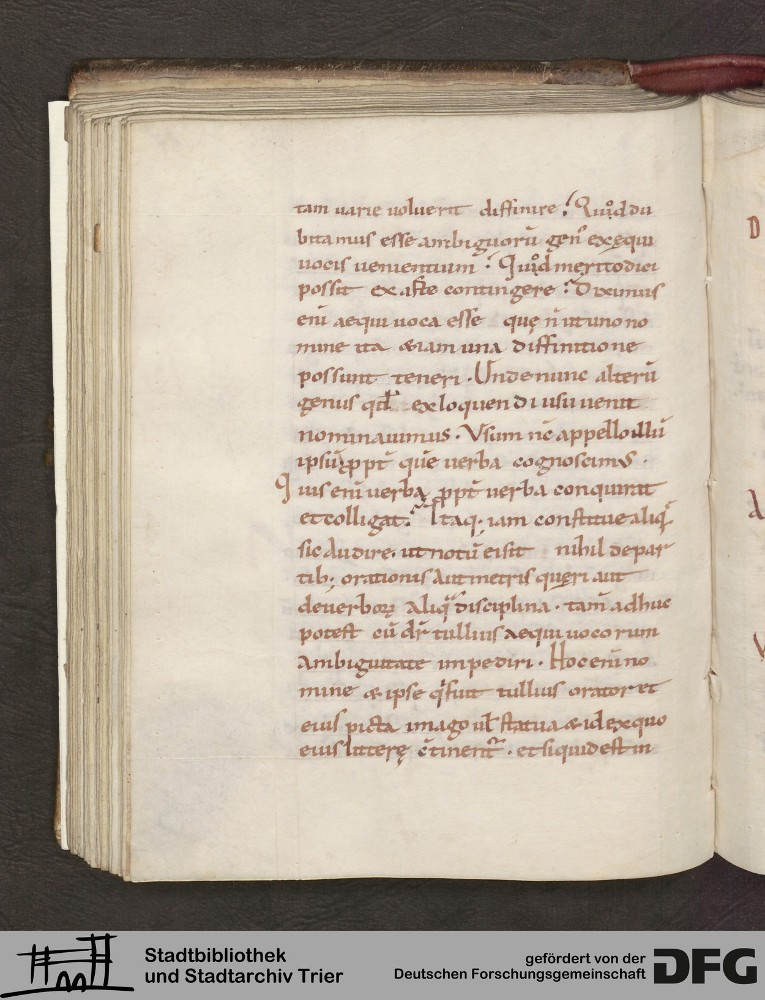 tam uarie uoluerit diffinire? Quod du
bitamus esse ambiguorū geń exęqui
uocis uenientium? Quod merito dici
possit ex arte contingere? Diximus
eni aequiuoca esse quę ń ut uno no
mine ita &iam una diffinitione
possunt teneri. Unde nunc alterū
genus qđ ex loquendi usu uenit
nominauimus. Vsum nc̄ appello illū
ipsū ppt̄ quē uerba cognoscims.
Quis eni uerba ppt̄ uerba conquirat
et colligat? Itaq; iam constitue aliq̄
sic audire. ut notū ei sit nihil de par
tib; orationis aut metris quęri aut
de uerborꝝ aliqᵃ disciplina. tam̄ adhuc
potest cū dr̄ tullius aequiuocorum
ambiguitate impediri. Hoc eni no
mine & ipse qⁱ fuit tullius orator et
eius picta imago ul̄ statua & id ex quo
eius litterę c̄tinent̄. et siquid est in
D
Stadtbibliothek
und Stadtarchiv Trier
gefördert von der
Deutschen Forschungsgemeinschaft
DFG